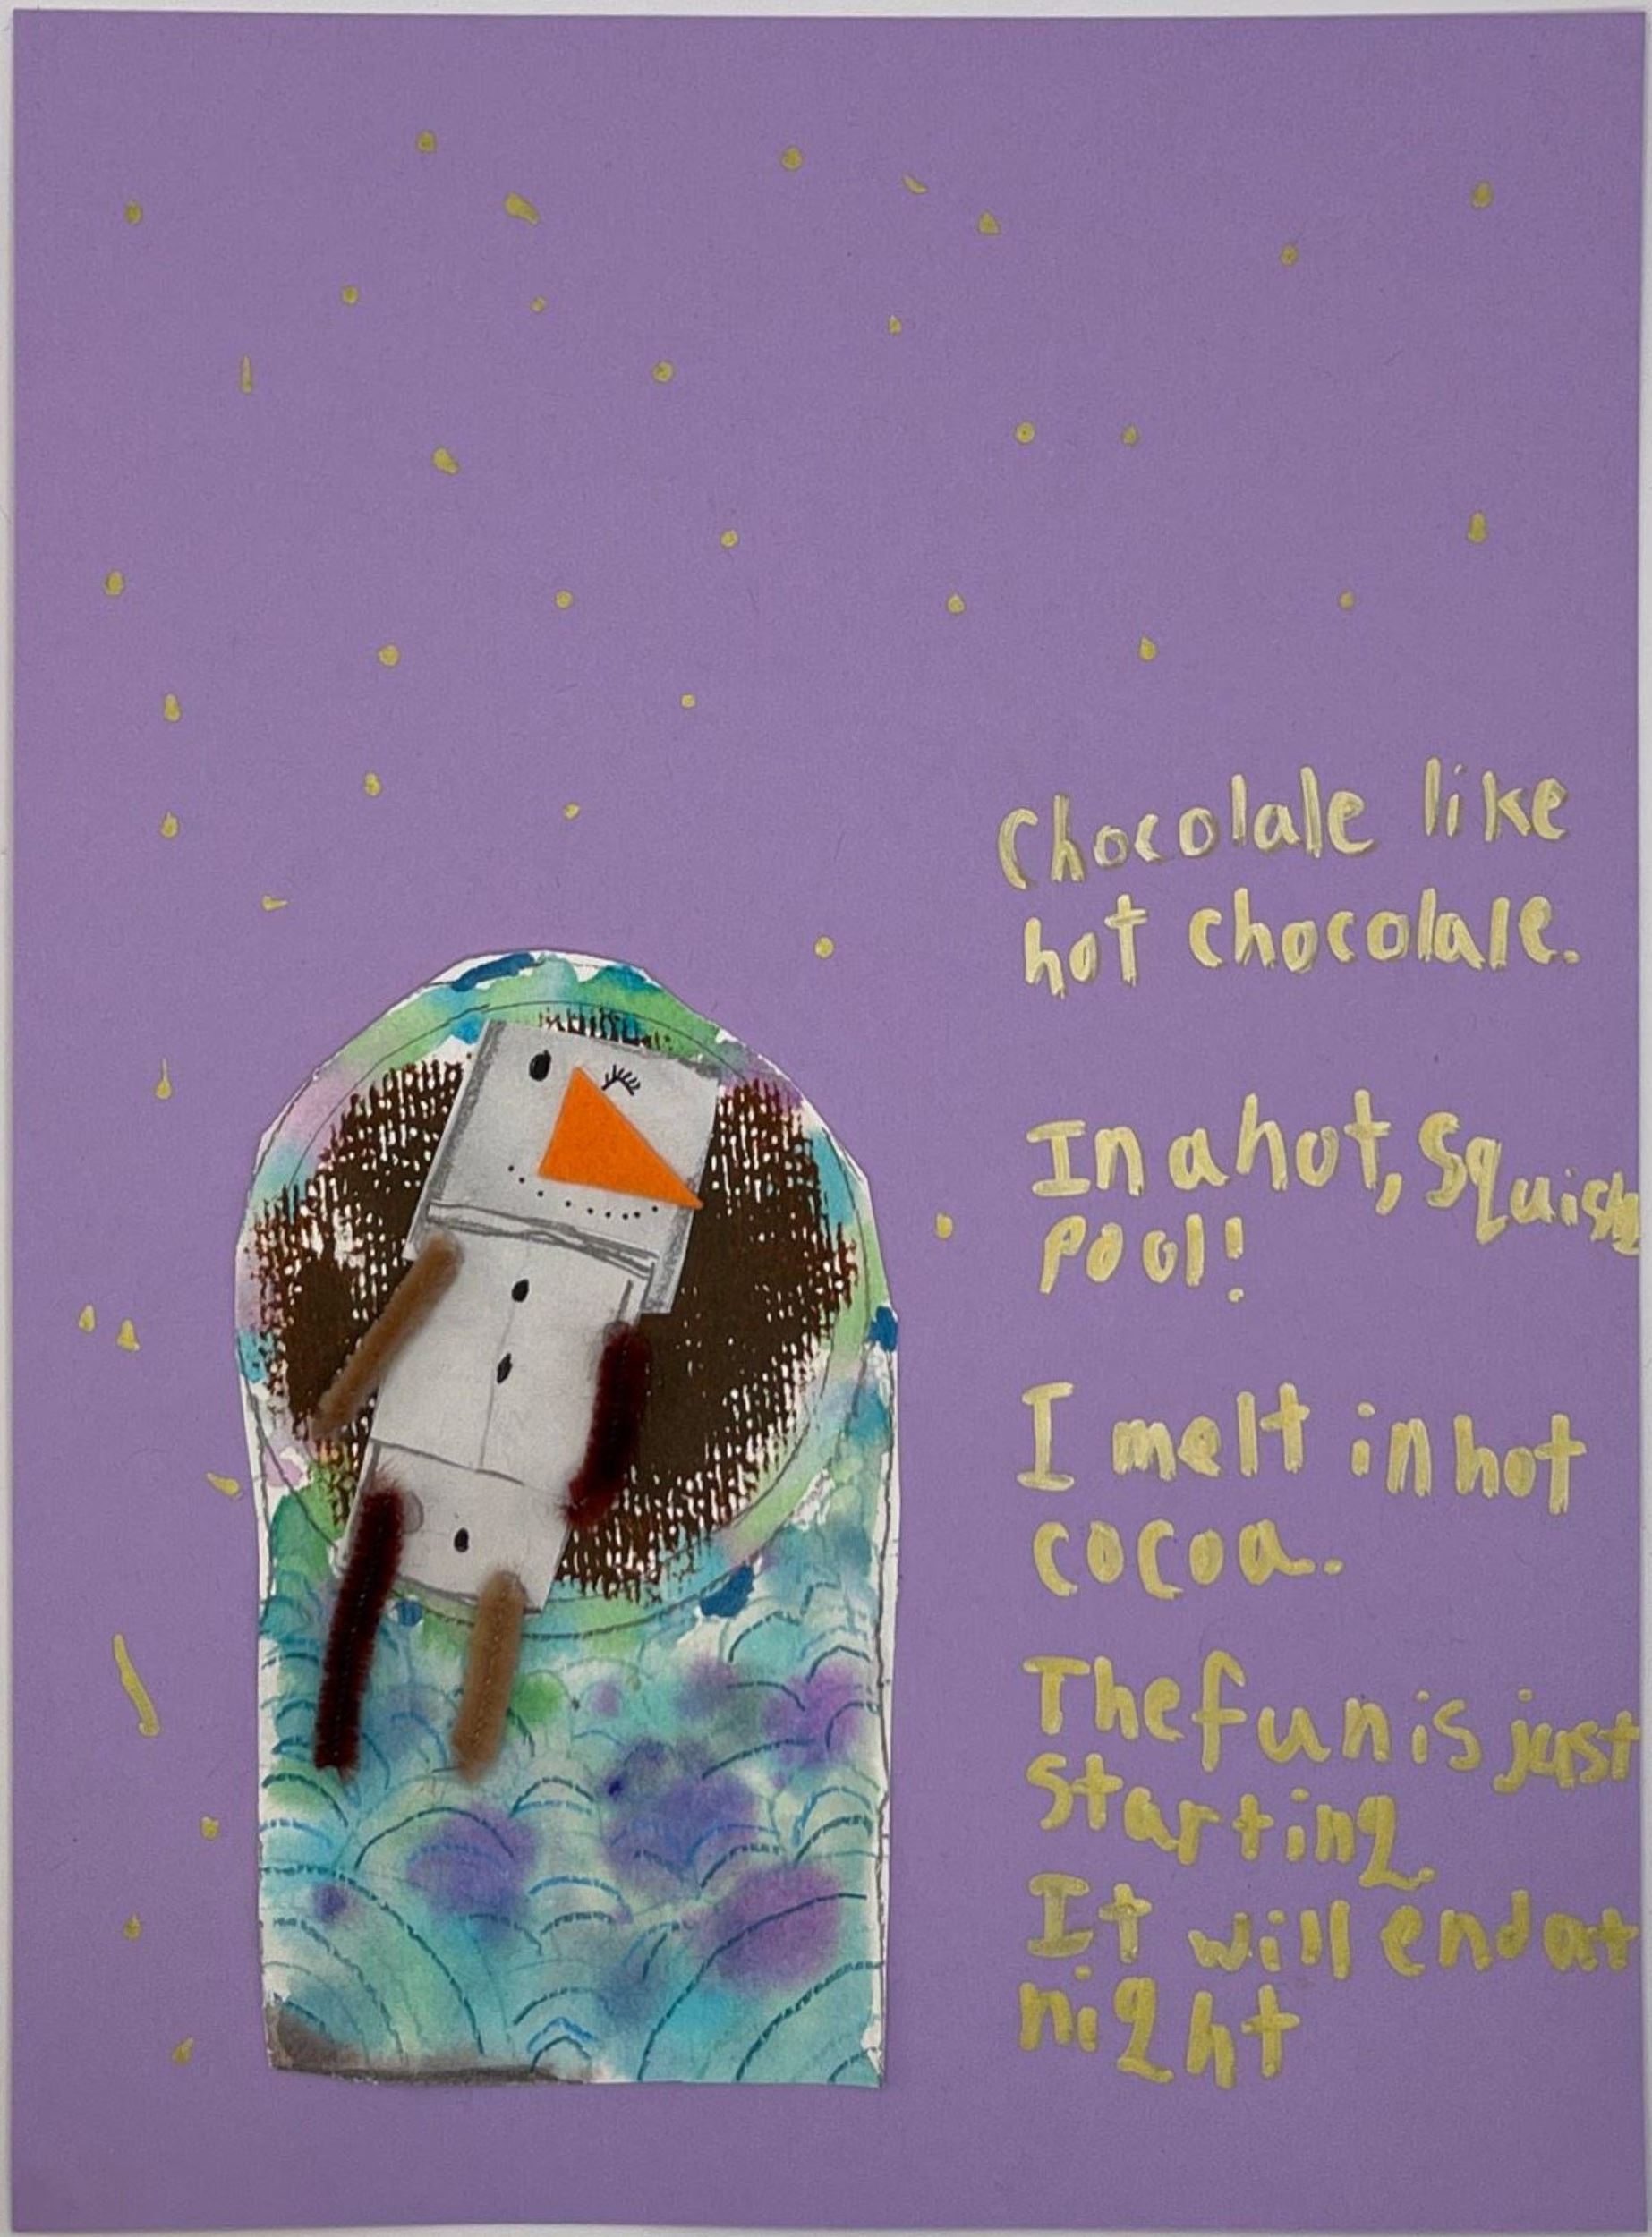 Chocolate like
hot chocolate.
In a hot, Squish
pool!
I melt in hot
cocoa.
The fun is just
starting
It will end at
night